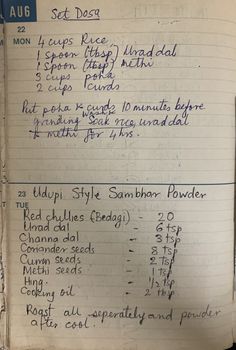 AUG
Set Dosa
22
MON
4 cups Rice
1 Spoon (tbsp) Urad dal
1 Spoon (tbsp) Methi
3 cups poha
2 cups curds
Put poha & curds 10 minutes before
grinding Soak rice, urad dal
& methi for 4 hrs.
23 Udupi Style Sambhar Powder
TUE
Red chyllies (Bedagi) - 20
Urad dal - 6 tsp
Channa dal - 3 tsp
Coriander seeds - 8 tsp
Cumin seeds - 2 tsp
Methi seeds - 1 tsp
Hing - 1/2 tsp
Cooking oil - 2 tbsp
Roast all seperately and powder
after cool.